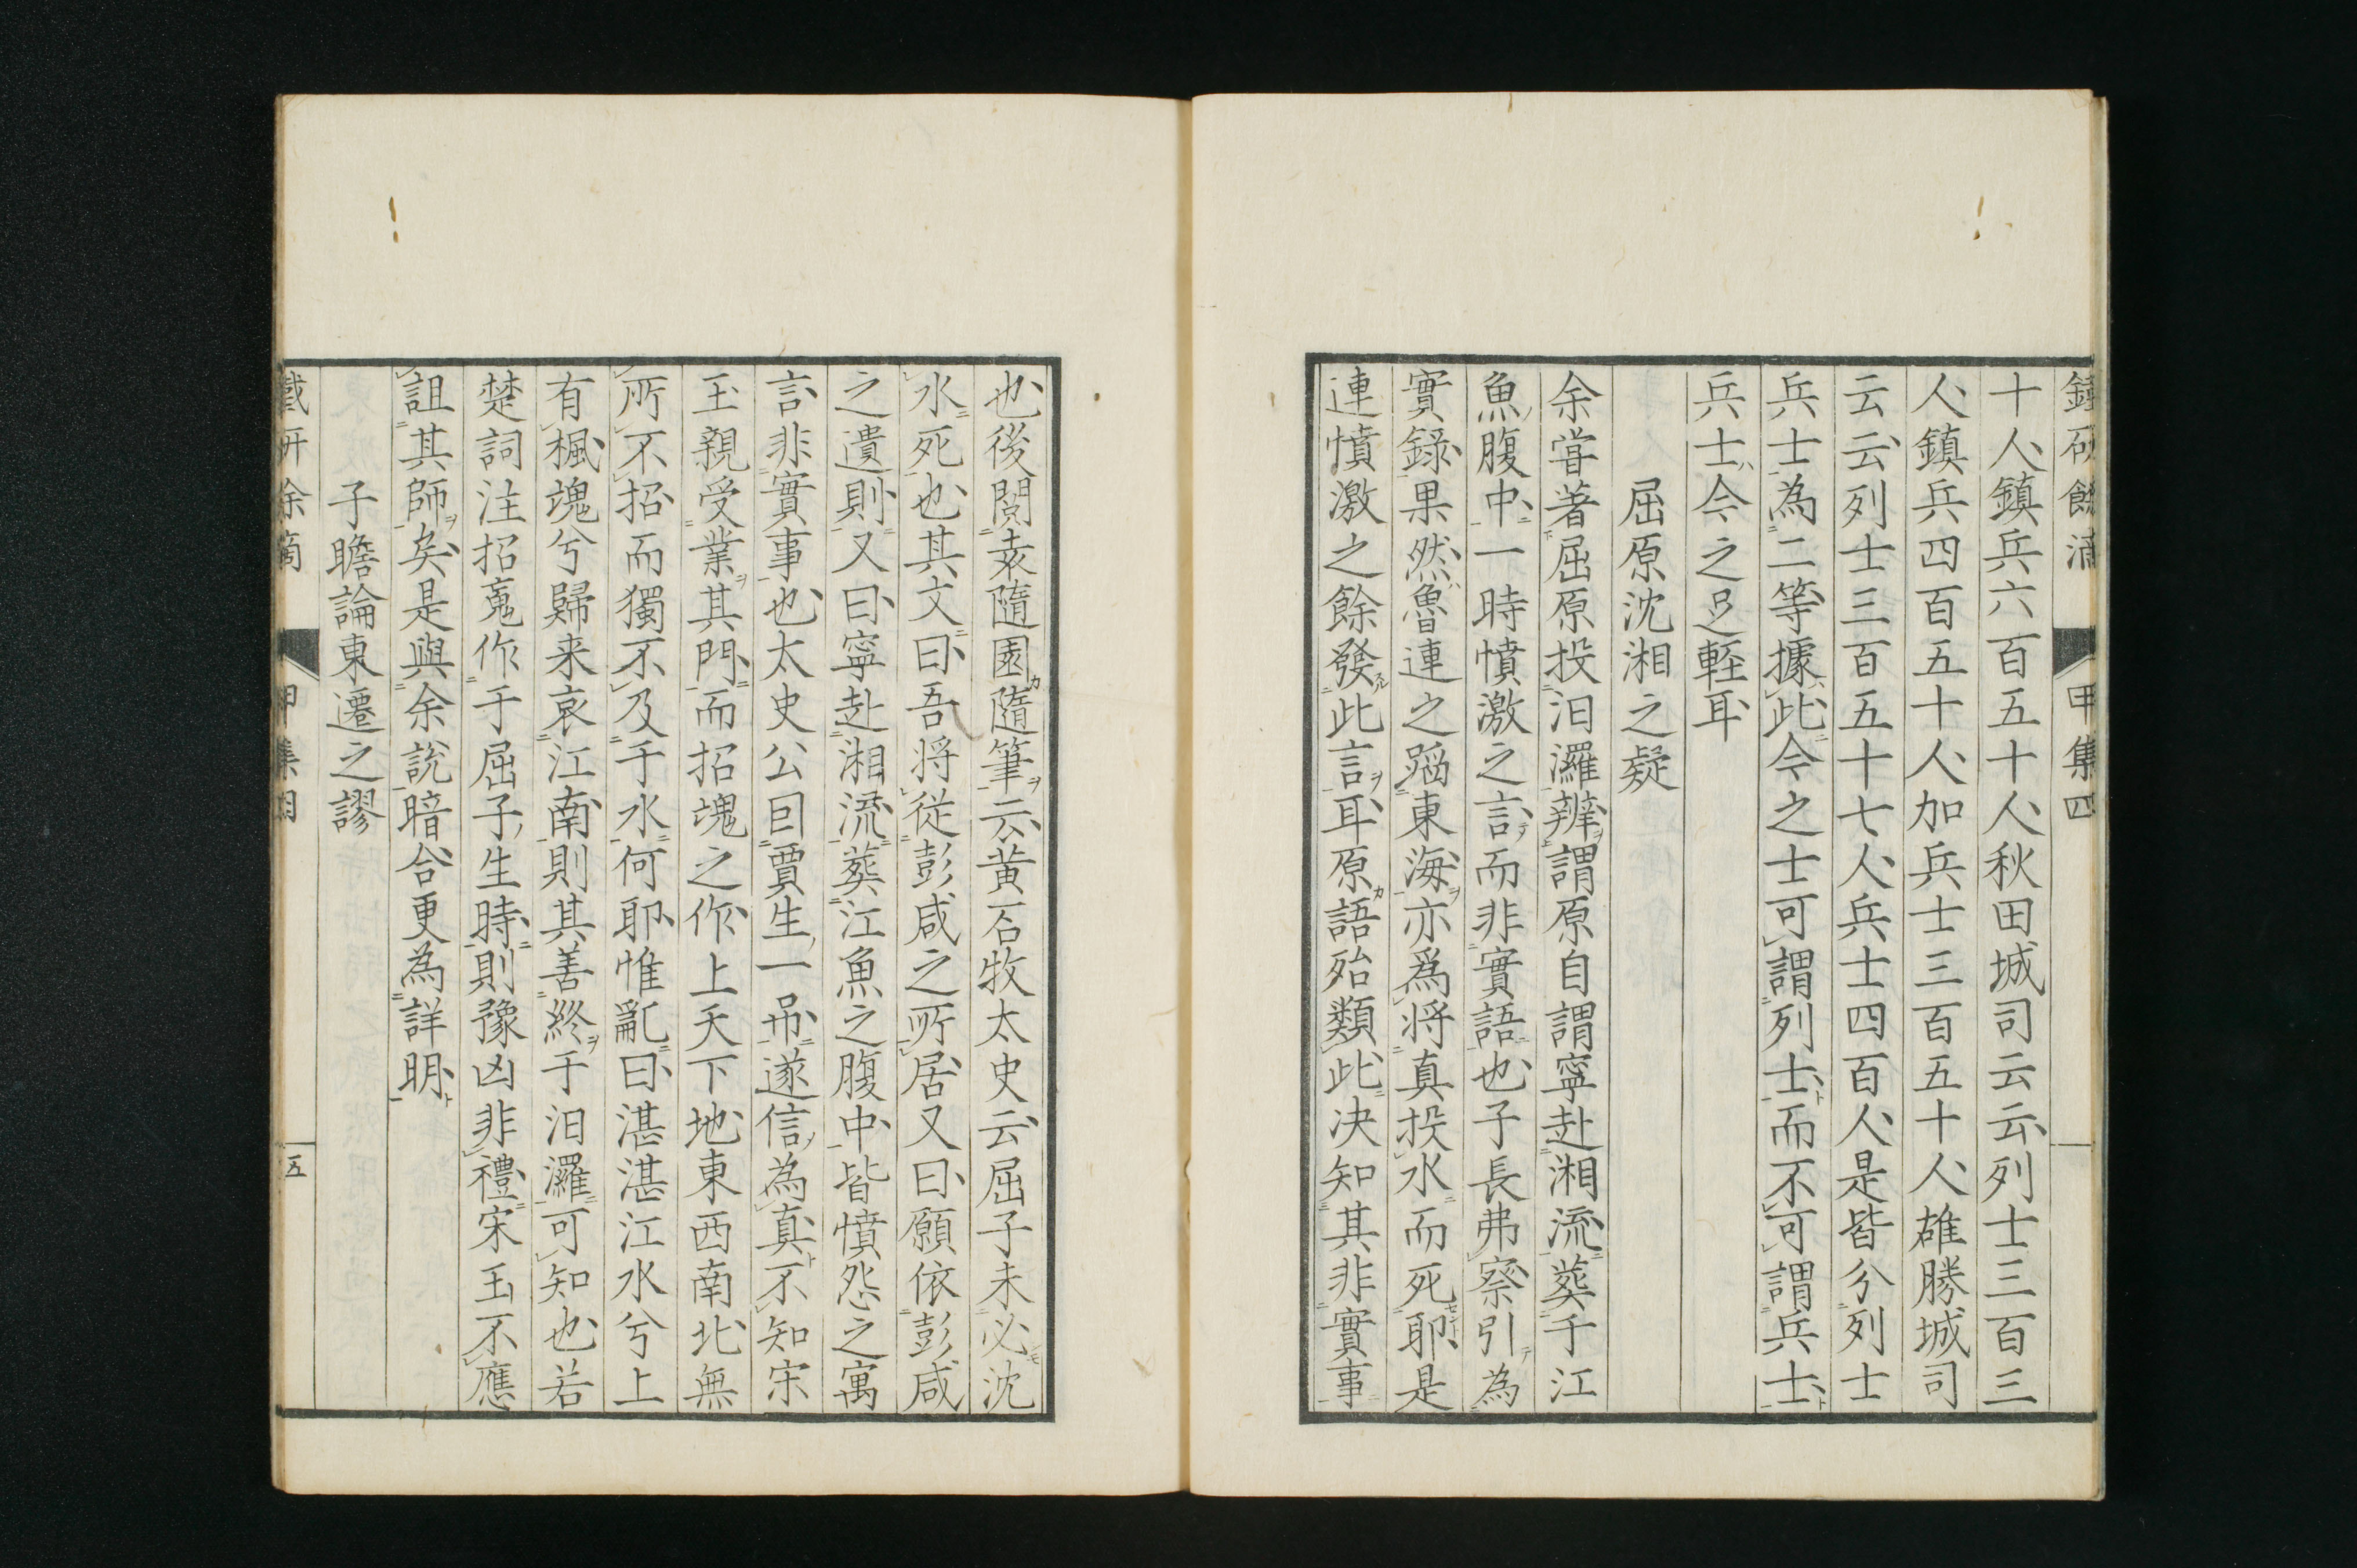 十人鎮兵六百五十人秋田城司云云列士三百三
人鎮兵四百五十人加兵士三百五十人雄勝城司
云云列士三百五十七人兵士四百人是皆分列士
兵士為二等據此今之士可謂列士而不可謂兵士
兵士今之足輕耳
屈原沈湘之疑
余嘗著屈原投汨羅辨謂原自謂寧赴湘流葬于江
魚腹中一時憤激之言而非實語也子長弗察引為
實錄果然魯連之蹈東海亦爲將真投水而死耶是
連憤激之餘發此言耳原語殆類此决知其非實事
也後閱袁隨園隨筆云黃石牧太史云屈子未必沈
水死也其文曰吾將從彭咸之所居又曰願依彭咸
之遺則又曰寧赴湘流葬江魚之腹中皆憤怨之寓
言非實事也太史公因賈生一吊遂信為真不知宋
玉親受業其門而招魂之作上天下地東西南北無
所不招而獨不及于水何耶惟亂曰湛湛江水兮上
有楓魂兮歸来哀江南則其善終于汨羅可知也若
楚詞注招䰟作于屈子生時則豫凶非禮宋玉不應
詛其師矣是與余說暗合更為詳明
子瞻論東遷之謬
甲集四
五